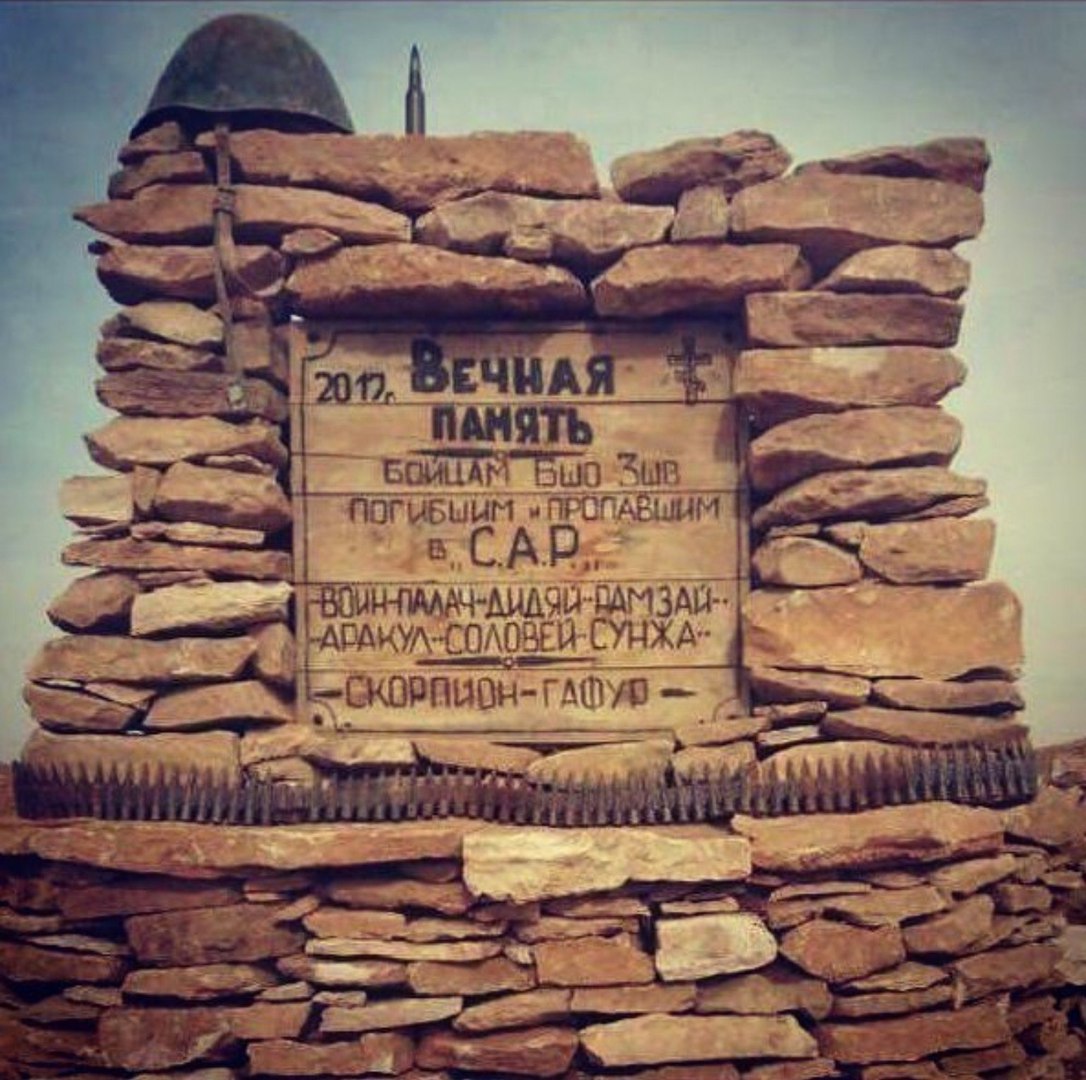 2017г. ВЕЧНАЯ
ПАМЯТЬ
БОЙЦАМ БШО ЗШВ
ПОГИБШИМ и ПРОПАВШИМ
В „С.А.Р.„
-ВОИН-ПАЛАЧ-ДИДЯЙ-РАМЗАЙ-
-АРАКУЛ-СОЛОВЕЙ-СУНЖА-
-СКОРПИОН-ГАФУР-